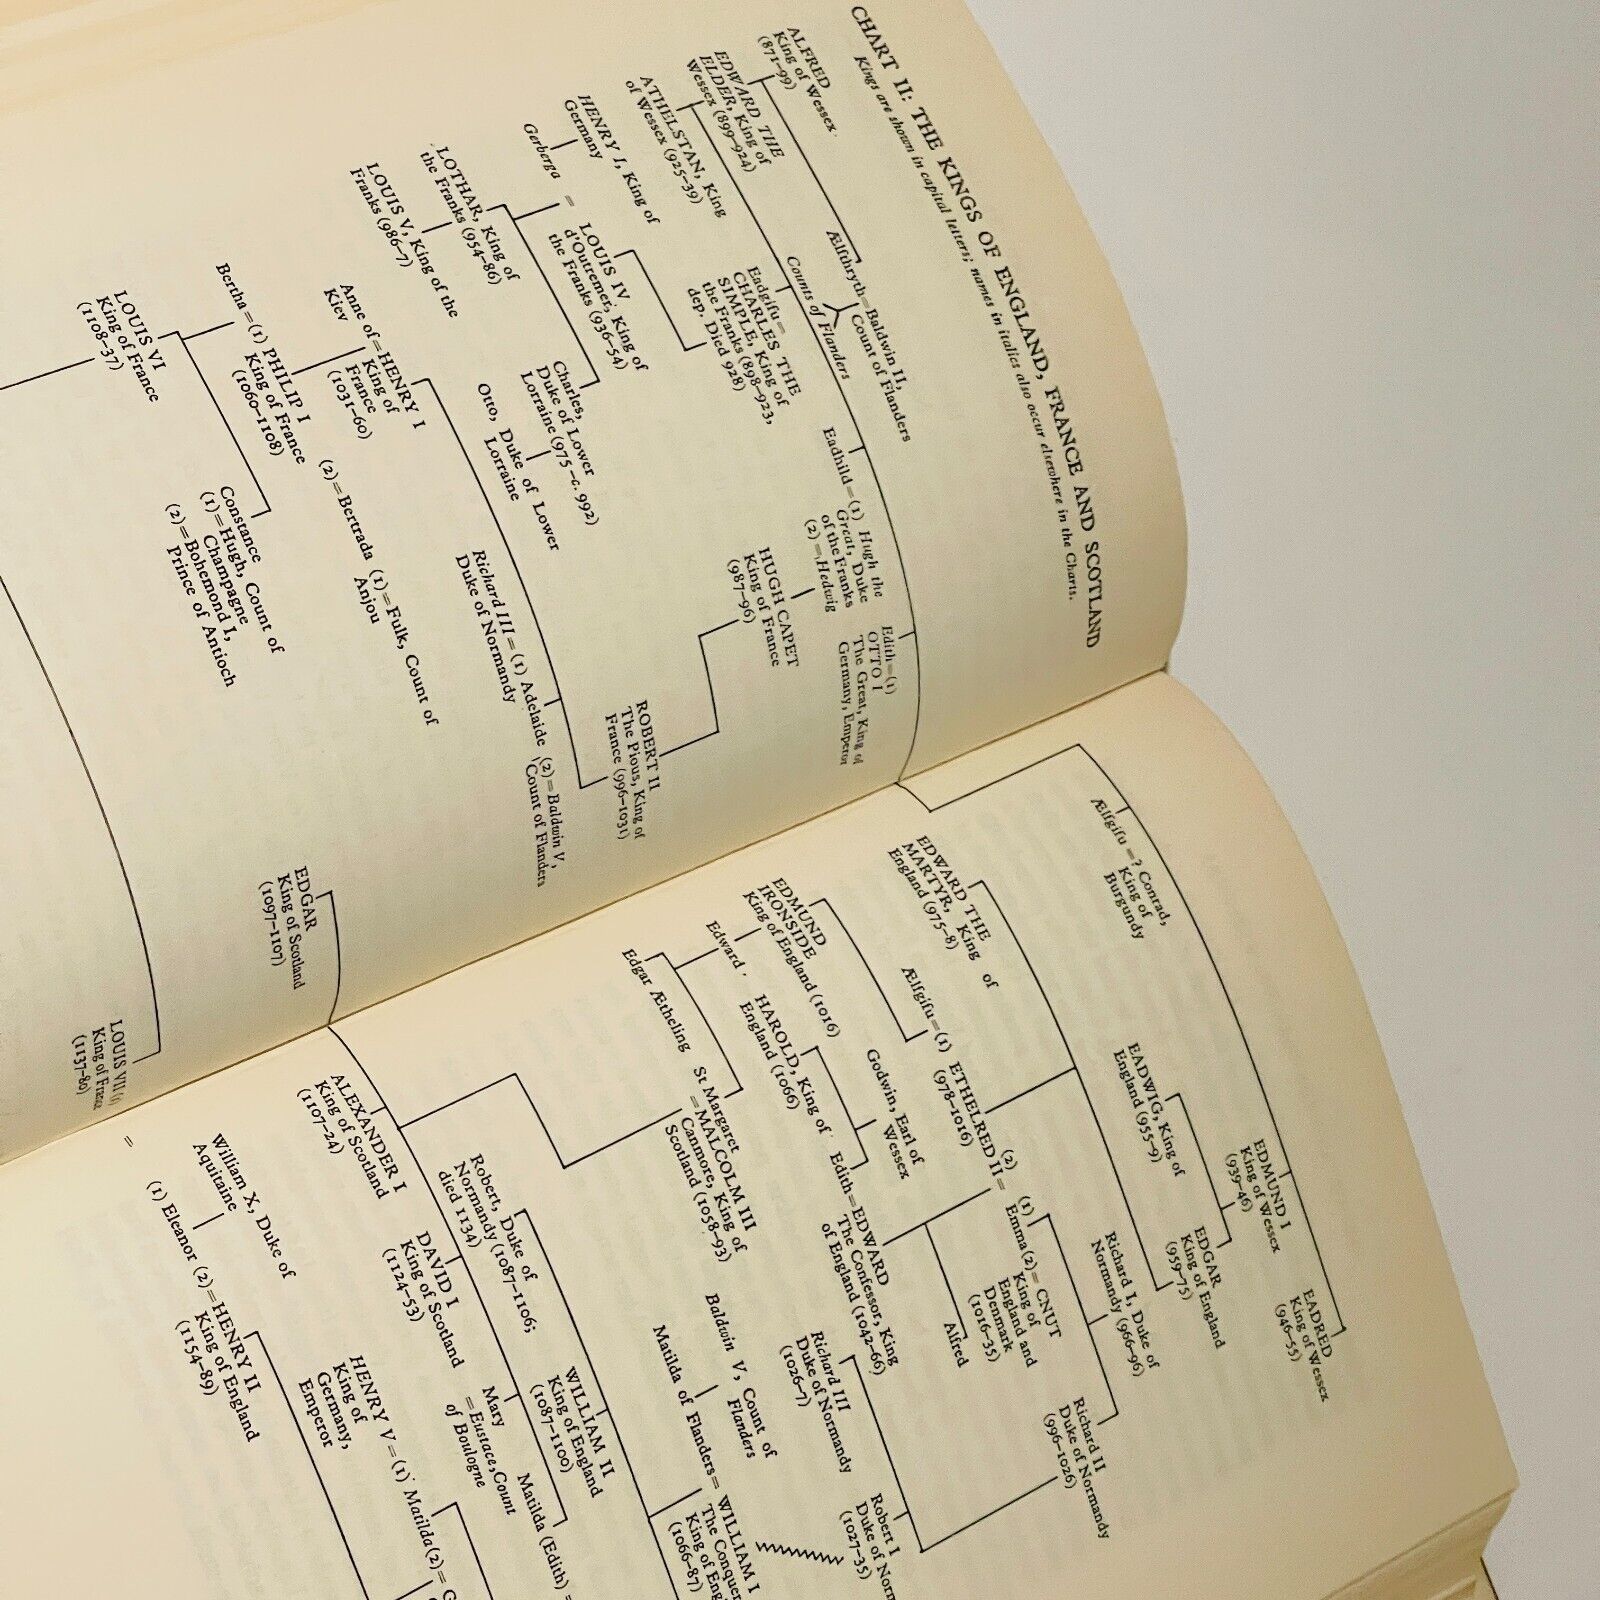 CHART II: THE KINGS OF ENGLAND, FRANCE AND SCOTLAND
Kings are shown in capital letters; names in italics also occur elsewhere in the Charts.
ALFRED
King of Wessex
(871–99)
Ælfthryth=Baldwin II,
Count of Flanders
Counts of Flanders
EDWARD THE
ELDER, King of
Wessex (899–924)
ATHELSTAN, King
of Wessex (925–39)
Eadgifu=
CHARLES THE
SIMPLE, King of
the Franks (898–923,
dep. Died 928)
Eadhild=(1) Hugh the
Great, Duke
of the Franks
(2)=Hedwig
Edith=(1)
OTTO I
The Great, King of
Germany, Emperor
HENRY I, King of
Germany
Gerberga =
LOUIS IV
d'Outremer, King of
the Franks (936–54)
HUGH CAPET
King of France
(987–96)
LOTHAR, King of
the Franks (954–86)
Charles,
Duke of Lower
Lorraine (975–c. 992)
ROBERT II
The Pious, King of
France (996–1031)
LOUIS V, King of the
Franks (986–7)
Otto, Duke of Lower
Lorraine
Anne of=HENRY I
Kiev
King of
France
(1031–60)
Richard III=(1) Adelaide (2)=Baldwin V,
Duke of Normandy
Count of Flanders
Bertha=(1) PHILIP I
King of France
(1060–1108)
(2)=Bertrada (1)=Fulk, Count of
Anjou
LOUIS VI
King of France
(1108–37)
Constance
(1)=Hugh, Count of
Champagne
(2)=Bohemond I,
Prince of Antioch
EDGAR
King of Scotland
(1097–1107)
LOUIS VII (1)
King of France
(1137–80)
Ælfgifu=? Conrad,
King of
Burgundy
EDMUND I
King of Wessex
(939–46)
EADRED
King of Wessex
(946–55)
EADWIG, King of
England (955–9)
EDGAR
King of England
(959–75)
EDWARD THE
MARTYR, King of
England (975–8)
Ælfgifu=(1) ETHELRED II=
(978–1016)
(2)
(1)
Emma(2)=CNUT
King of
England and
Denmark
(1016–35)
Richard I, Duke of
Normandy (966–96)
Richard II
Duke of Normandy
(996–1026)
EDMUND
IRONSIDE
King of England (1016)
Godwin, Earl of
Wessex
HAROLD, King of
England (1066)
Edith=EDWARD
The Confessor, King
of England (1042–66)
Alfred
Richard III
Duke of Normandy
(1026–7)
Robert I
Duke of Norm
(1027–35)
Edward
Edgar Ætheling
St Margaret
=MALCOLM III
Canmore, King of
Scotland (1058–93)
Baldwin V, Count of
Flanders
Matilda of Flanders=WILLIAM I
The Conquer
King of Eng
(1066–87)
ALEXANDER I
King of Scotland
(1107–24)
DAVID I
King of Scotland
(1124–53)
Mary
=Eustace, Count
of Boulogne
Matilda (Edith) =
Robert, Duke of
Normandy (1087–1106;
died 1134)
WILLIAM II
King of England
(1087–1100)
William X, Duke of
Aquitaine
=
(1) Eleanor (2)=HENRY II
King of England
(1154–89)
HENRY V=(1) Matilda(2)= G
King of
Germany,
Emperor